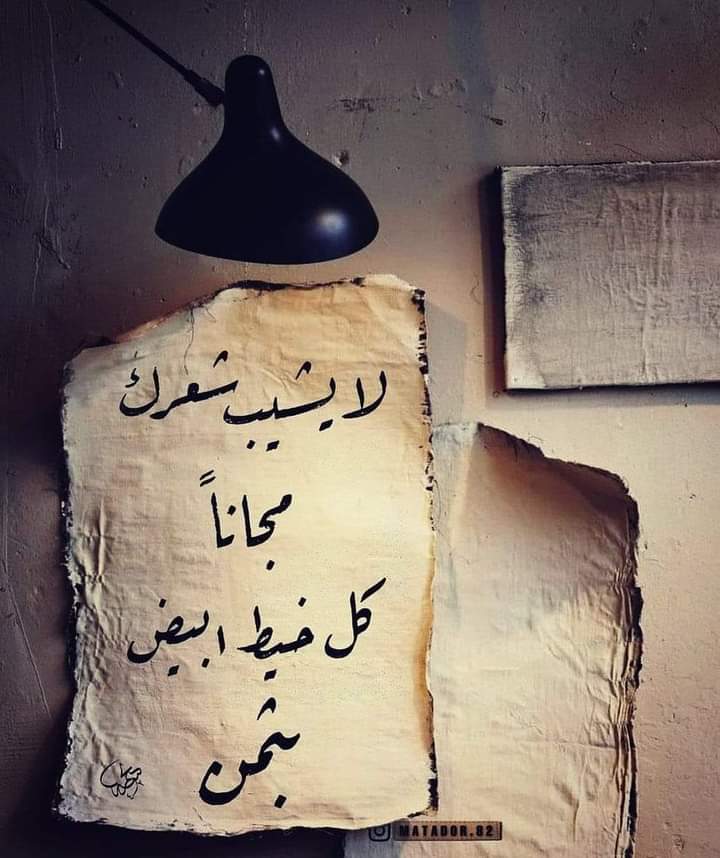 لا يشيب شعرك
مجاناً
كل خيط ابيض
بثمن
MATADOR.82